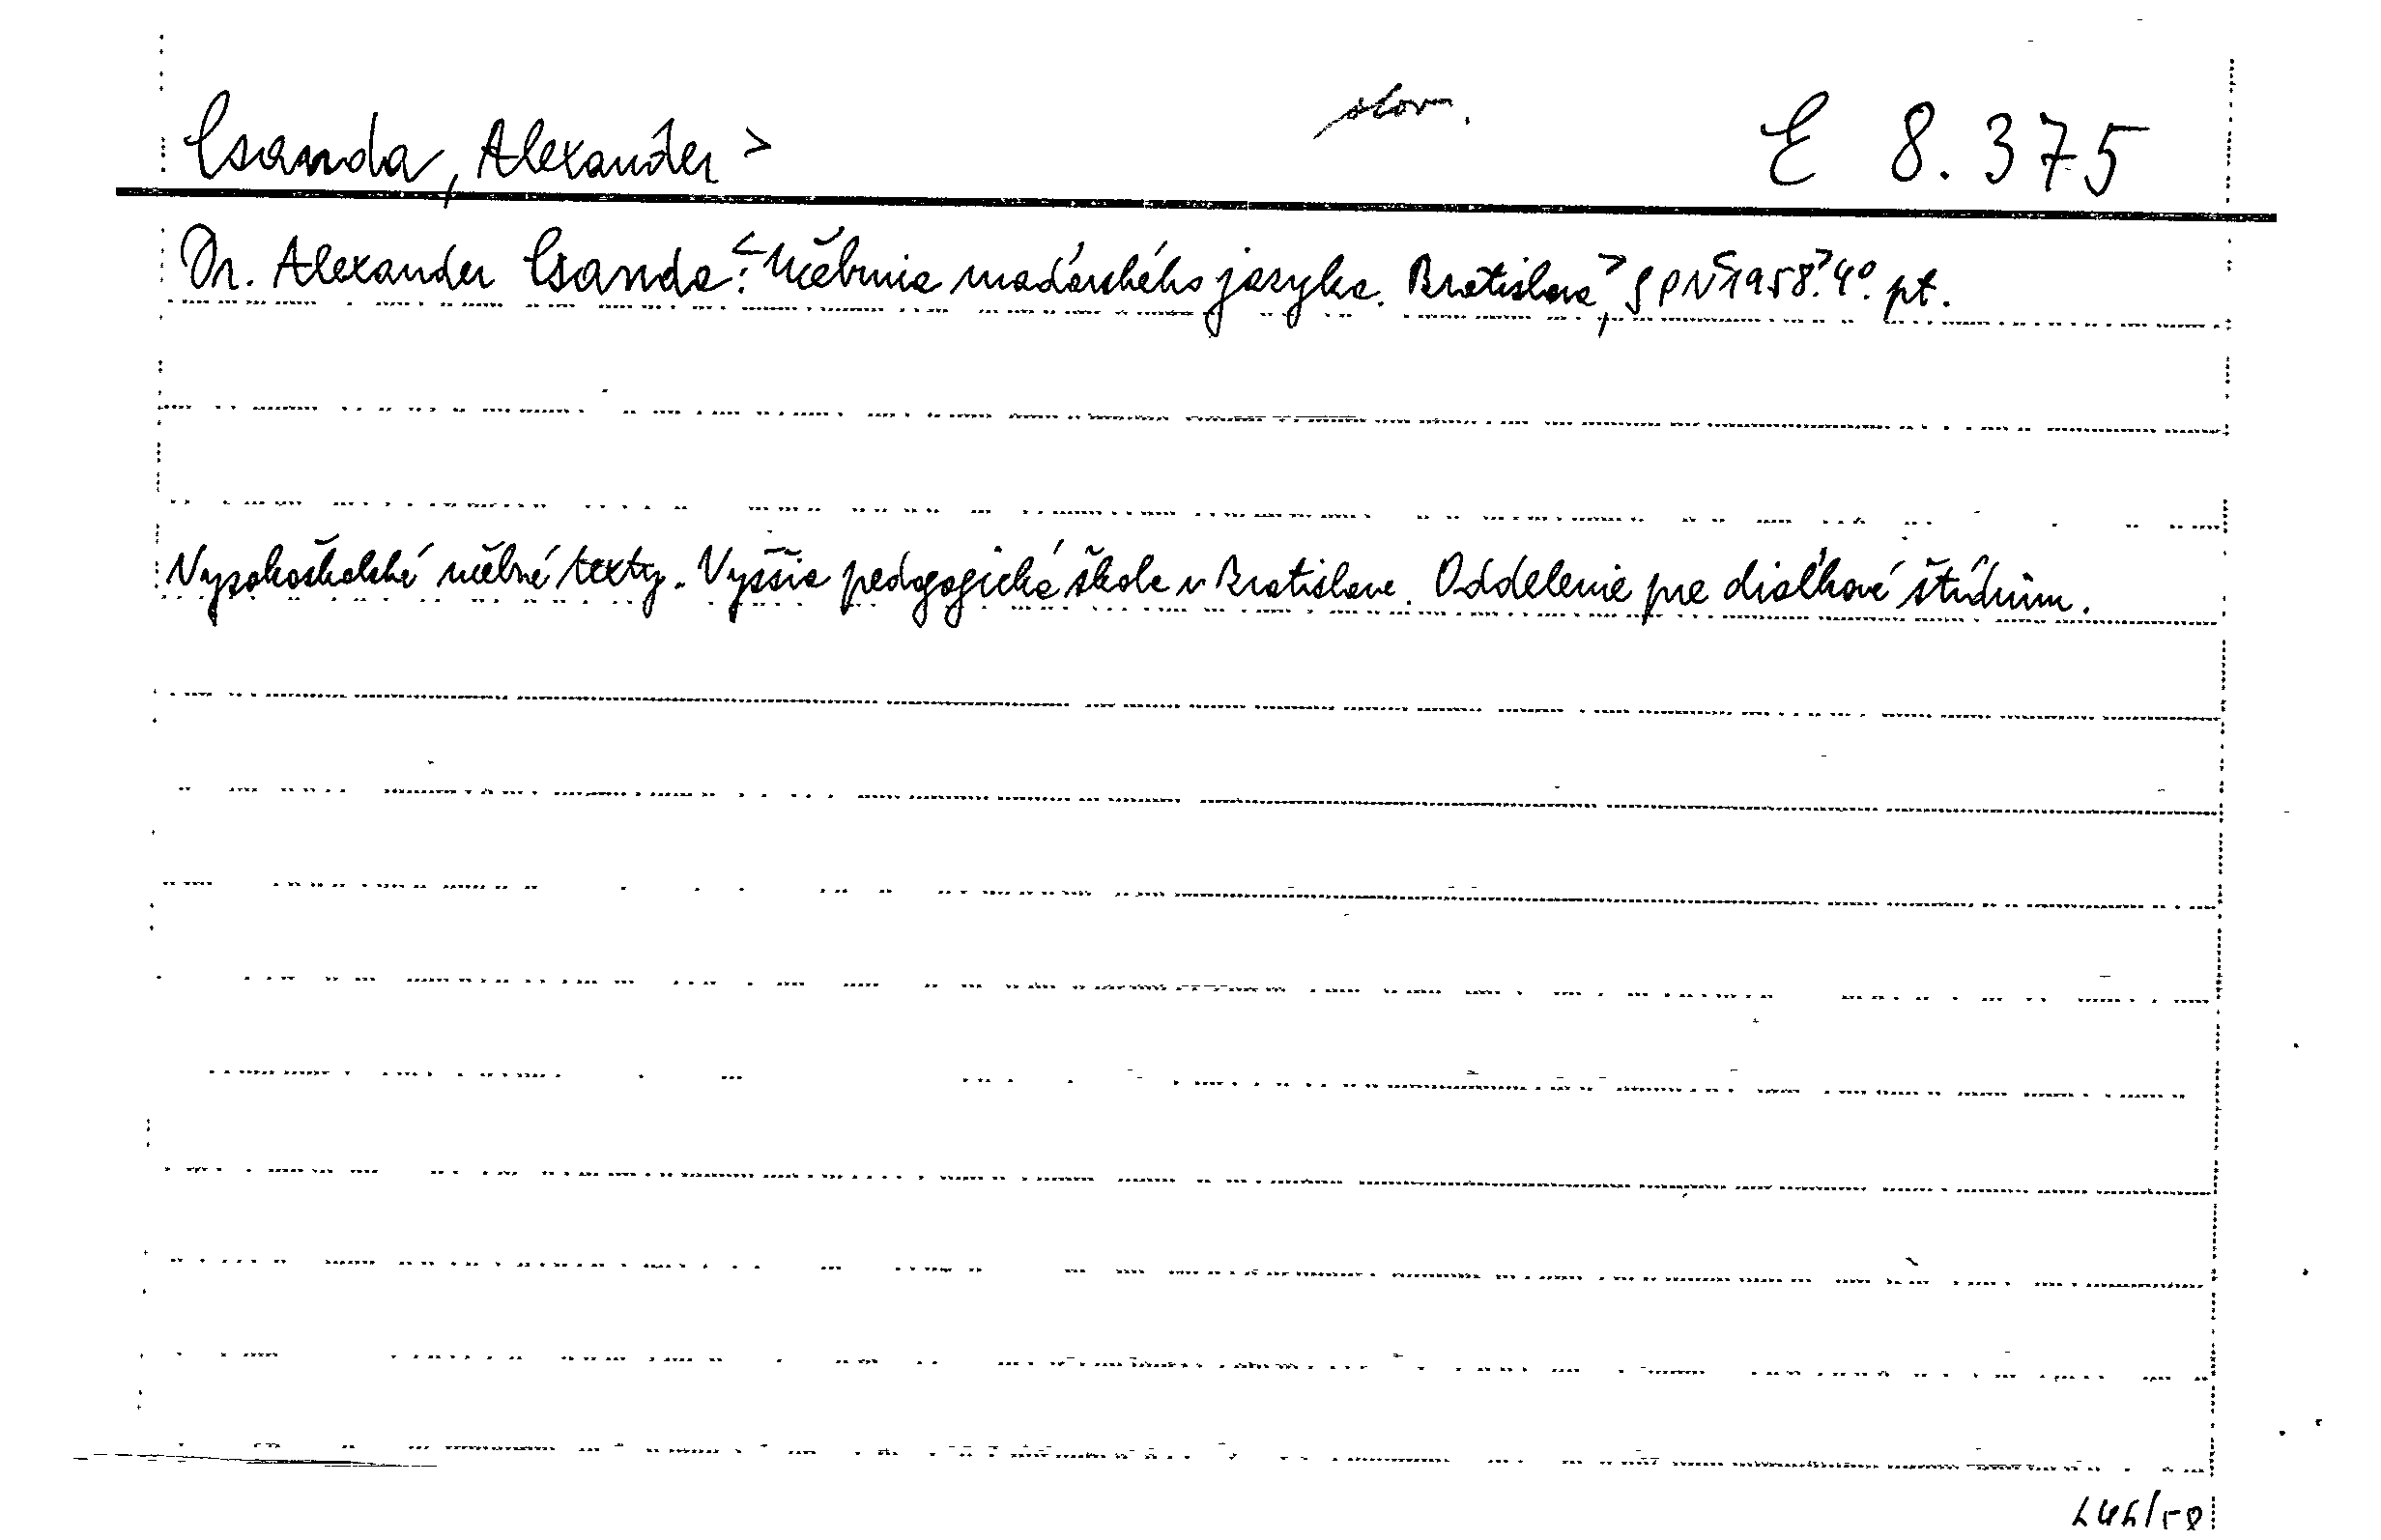 Csanda, Alexander >
slov.
E 8.375
Dr. Alexander Csanda:< Učebnica maďarského jazyka. Bratislava,> SPN <1958.> 4°. pt.
Vysokoškolské učebné texty. Vyššia pedagogická škola v Bratislave. Oddelenie pre diaľkové štúdium.